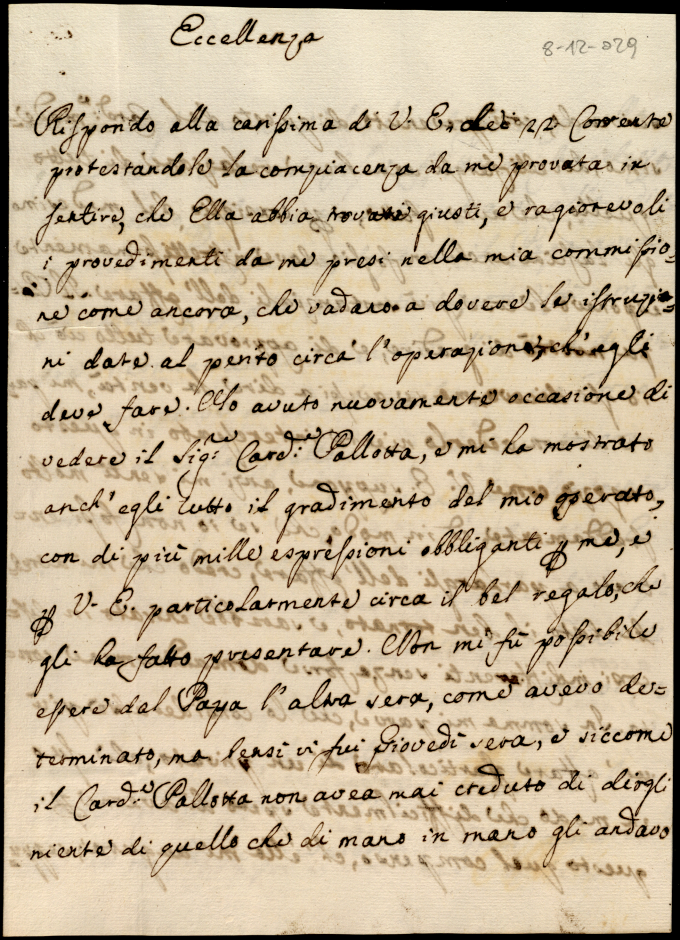 Eccellenza
8-12-029
Rispondo alla carissima di V. E. dei 22 Corrente
protestandole la compiacenza da me provata in
sentire, che Ella abbia trovati giusti, e ragionevoli
i provedimenti da me presi nella mia commissio=
ne come ancora, che vadano a dovere le istruzio=
ni date al perito circa l'operazione, ch'egli
deve fare. Ho avuto nuovamente occasione di
vedere il Sig.re Card.le Pallotta, e mi ha mostrato
anch'egli tutto il gradimento del mio operato,
con di più mille espressioni obbliganti p me, e
p V. E. particolarmente circa il bel regalo, che
gli ha fatto presentare. Non mi fù possibile
essere dal Papa l'altra sera, come avevo de=
terminato, ma bensi vi fui Giovedì sera, e siccome
il Card.le Pallotta non avea mai creduto di dirgli
niente di quello che di mano in mano gli andavo